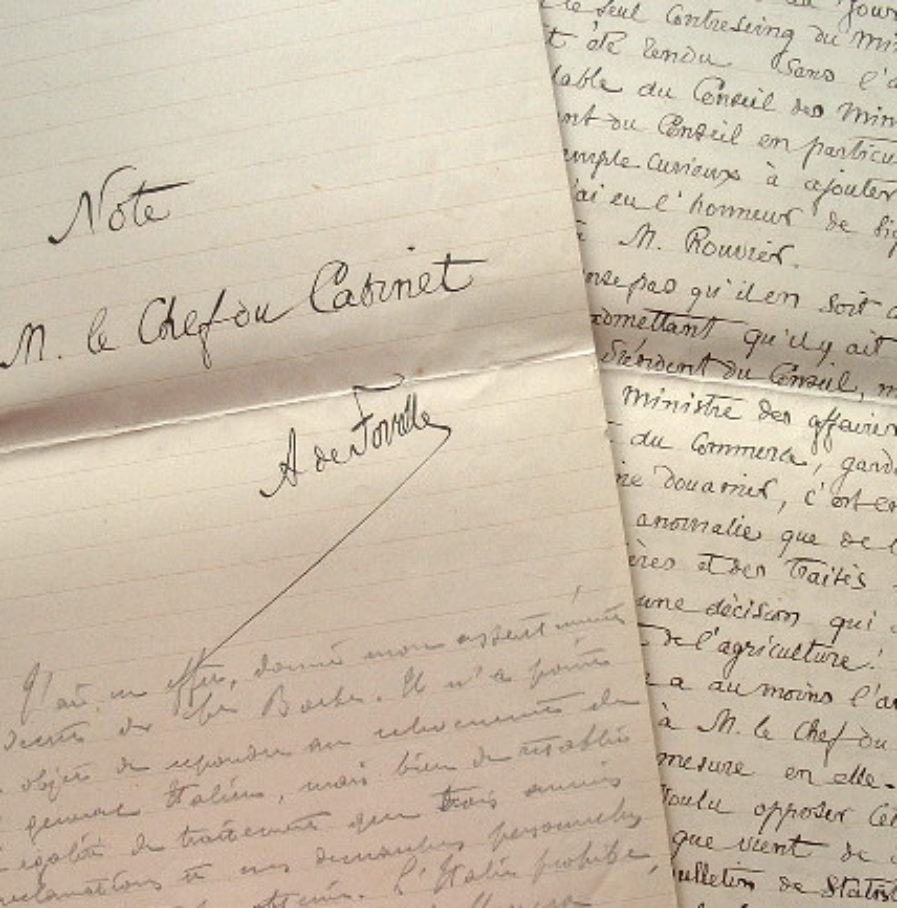 Note
M. le Chef du Cabinet
A de Foville
J'ai, en effet, donné mon assentiment
décret de M. Barbe. Il n'a point
objet de répondre au relèvement du
général Italien, mais bien de rétablir
égalité de traitement que trois années
réclamations et mes démarches personnelles
L'Italie prohibe,
jour
le seul Contreseing du Mi
été rendu Sans l'a
lable du Conseil des Min
ent du Conseil en particu
emple curieux à ajouter
j'ai eu l'honneur de sig
à M. Rouvier.
ense pas qu'il en soit a
admettant qu'il y ait
Président du Conseil, m
ministre des affaires
du Commerce, gard
me douanier, c'est en
anomalie que de l
ères et des Traités
une décision qui
de l'agriculture!
a au moins l'a
à M. le Chef du
mesure en elle-
voulu opposer cet
que vient de
ulletin de Statist